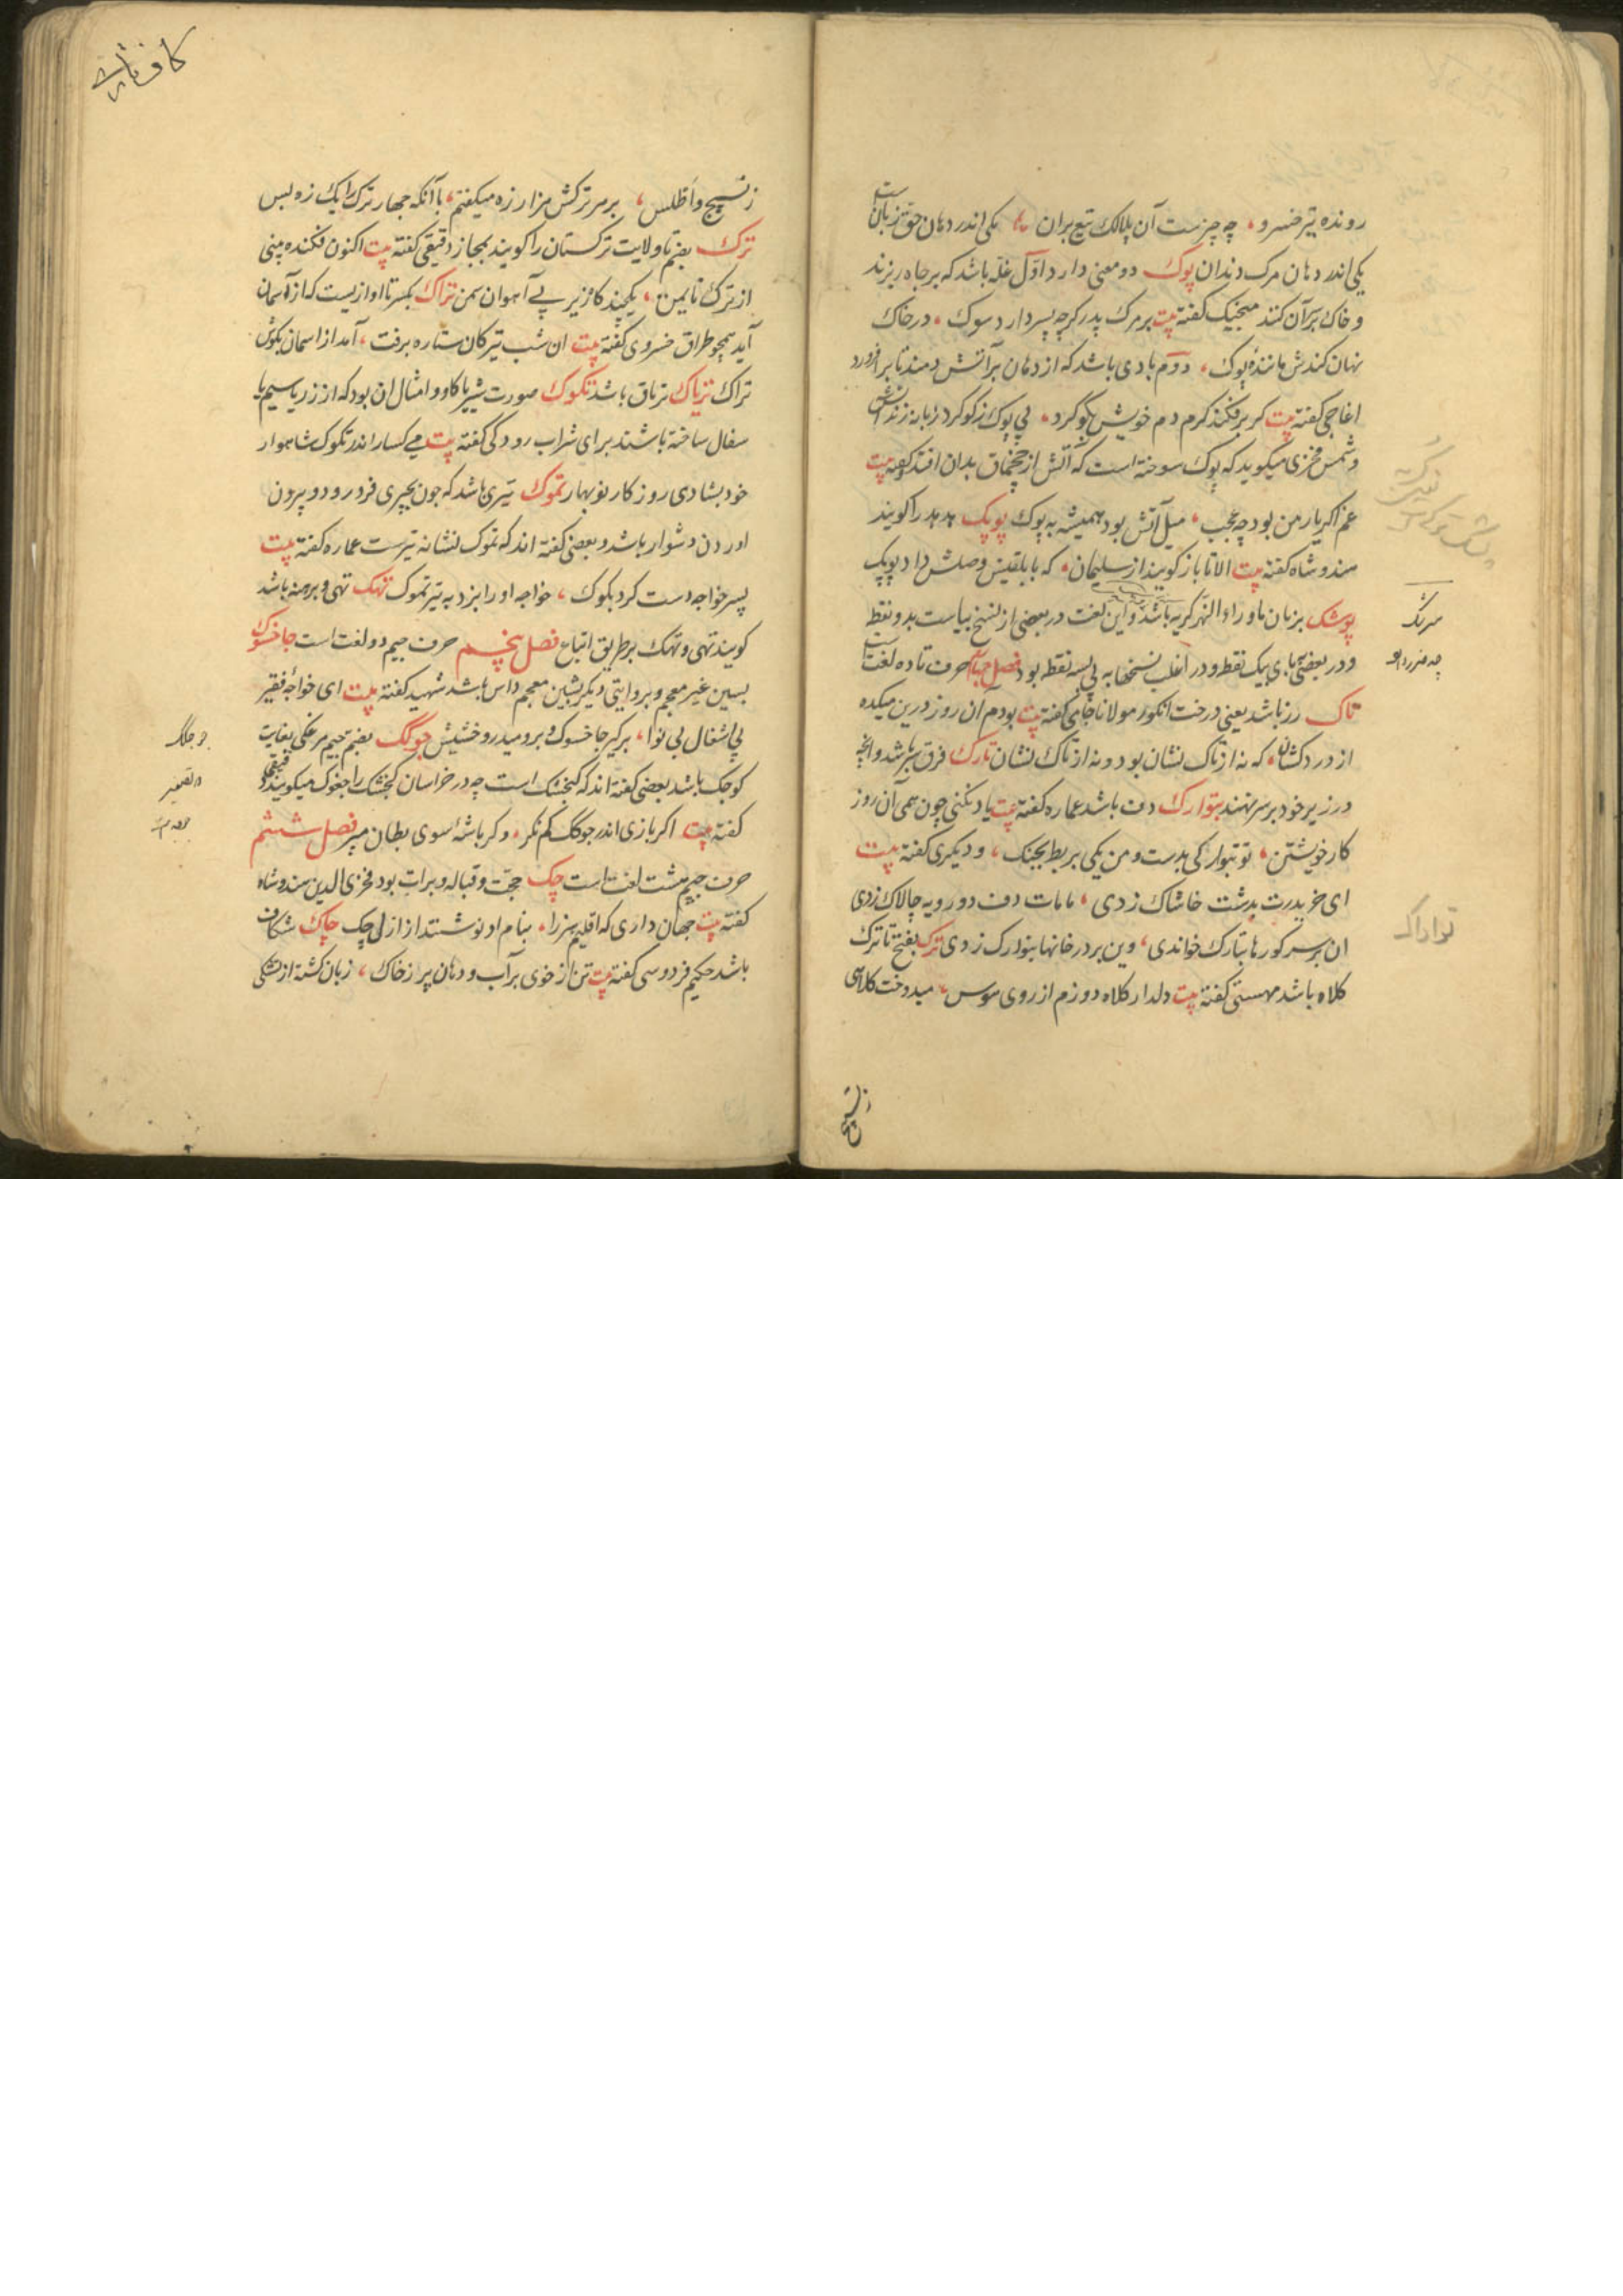 رونده تیر خسرو، چه چیزست آن پلالک تیغ بران یکی اندر دهان حق زبانست
یکی اندر دهان مرک دندان پوک دو معنی دارد اوّل غلّه باشد که بر چاه ریزند
و خاک بر سر آن کنند منجیک کفته بیت بر مرک پدر کرچه پسر دارد سوک، در خاک
نهان کندش مانندهٔ پوک، دوّم بادی باشد که از دهان بر آتش دمند تا بر افروزد
اغاجی کفته بیت کر بر فکند کرم دم خویش بکوکرد، بی پوک ز کوکرد زبانه زند آتش
و شمس فخری میکوید که پوک سوخته است که آتش از چخماق بدان افتد کفته بیت
غم اکر یار من بود چه عجب، میل آتش بود همیشه به پوک پوپک هدهد را کویند
هندوشاه کفته بیت الا تا باز کویند از سلیمان، که با بلقیس وصلش داد پوپک
پوشک بزبان ماوراء النهر کربه باشد و این لغت در بعضی از نسخ بیاست بدو نقطه
و در بعضی ببای بیک نقطه و در اغلب نسخها به پی سه نقطه بود فصل چهارم حرف تا ده لغت است
تاک رز باشد یعنی درخت انکور مولانا جامی کفته بیت بودم آن روز درین میکده
از دردکشان، که نه از تاک نشان بود و نه از تاک نشان تارک فرق سر باشد و آنچه
در زیر خود بر سر نهند تبوارک دف باشد عماره کفته بیت یاد نکنی چون همی آن روز
کار خویشتن، تو تبوارکی بدست و من یکی بربط بچنک، و دیکری کفته بیت
ای خر پدرت بدشت خاشاک زدی، مامات دف دورویه چالاک زدی
ان بر سر کورها تبارک خواندی، وین بر در خانها تبوارک زدی ترک بفتح تا ترک
کلاه باشد مهستی کفته بیت دلدار کلاه دوزم از روی هوس، میدوخت کلاهی
سرنک
ز نسیج
کاف فارسی
ز نسیج و اطلس، بر هر ترکش هزار زه میکفتم، با آنکه چهار ترک را یک زه بس
ترک بضم تا ولایت ترکستان را کویند بمجاز دقیقی کفته بیت اکنون فکنده بینی
از ترک تا یمن، یکچند کازیر پی آهوان سمن تراک بکسر تا اوازیست که از آسمان
آید همچو طراق خسروی کفته بیت ان شب تیر کان ستاره برفت، آمد از اسمان بکوش
تراک تریاک تریاق باشد تکوک صورت شیر یا کاو و امثال ان بود که از زر یا سیم یا
سفال ساخته باشند برای شراب رودکی کفته بیت می کسار اندر تکوک شاهوار
خور بشادی روزکار نوبهار تموک تیری باشد که چون بچیزی فرو رود و بیرون
اوردن دشوار باشد و بعضی کفته اند که تموک نشانه تیرست عماره کفته بیت
پسر خواجه دست کرد بکوک، خواجه او را بزد به تیر تموک تهک تهی و برهنه باشد
کویند تهی و تهک بر طریق اتباع فصل پنجم حرف جیم دو لغت است جاخسوک
بسین غیر معجم و بروایتی دیکر بشین معجم داس باشد شهید کفته بیت ای خواجه فقیر
بی اشغال بی نوا، برکیر جاخسوک و برو میدرو خشیش جوکک بضم جیم مرغکی بغایت
کوچک باشد بعضی کفته اند که کنجشک است چه در خراسان کنجشک را جغوک میکویند دقیقی
کفته بیت اکر بازی اندر جوکک کم نکر، وکر باشهٔ سوی بطان مپر فصل ششم
حرف چیم هشت لغت است چک حجّت و قباله و برات بود فخری الدین هندوشاه
کفته بیت جهان داری که اقلیم هنر را، بنام او نوشتند از ازل چک چاک شکاف
باشد حکیم فردوسی کفته بیت تن از خوی پر آب و دهان پر ز خاک، زبان کشته از تشنکی